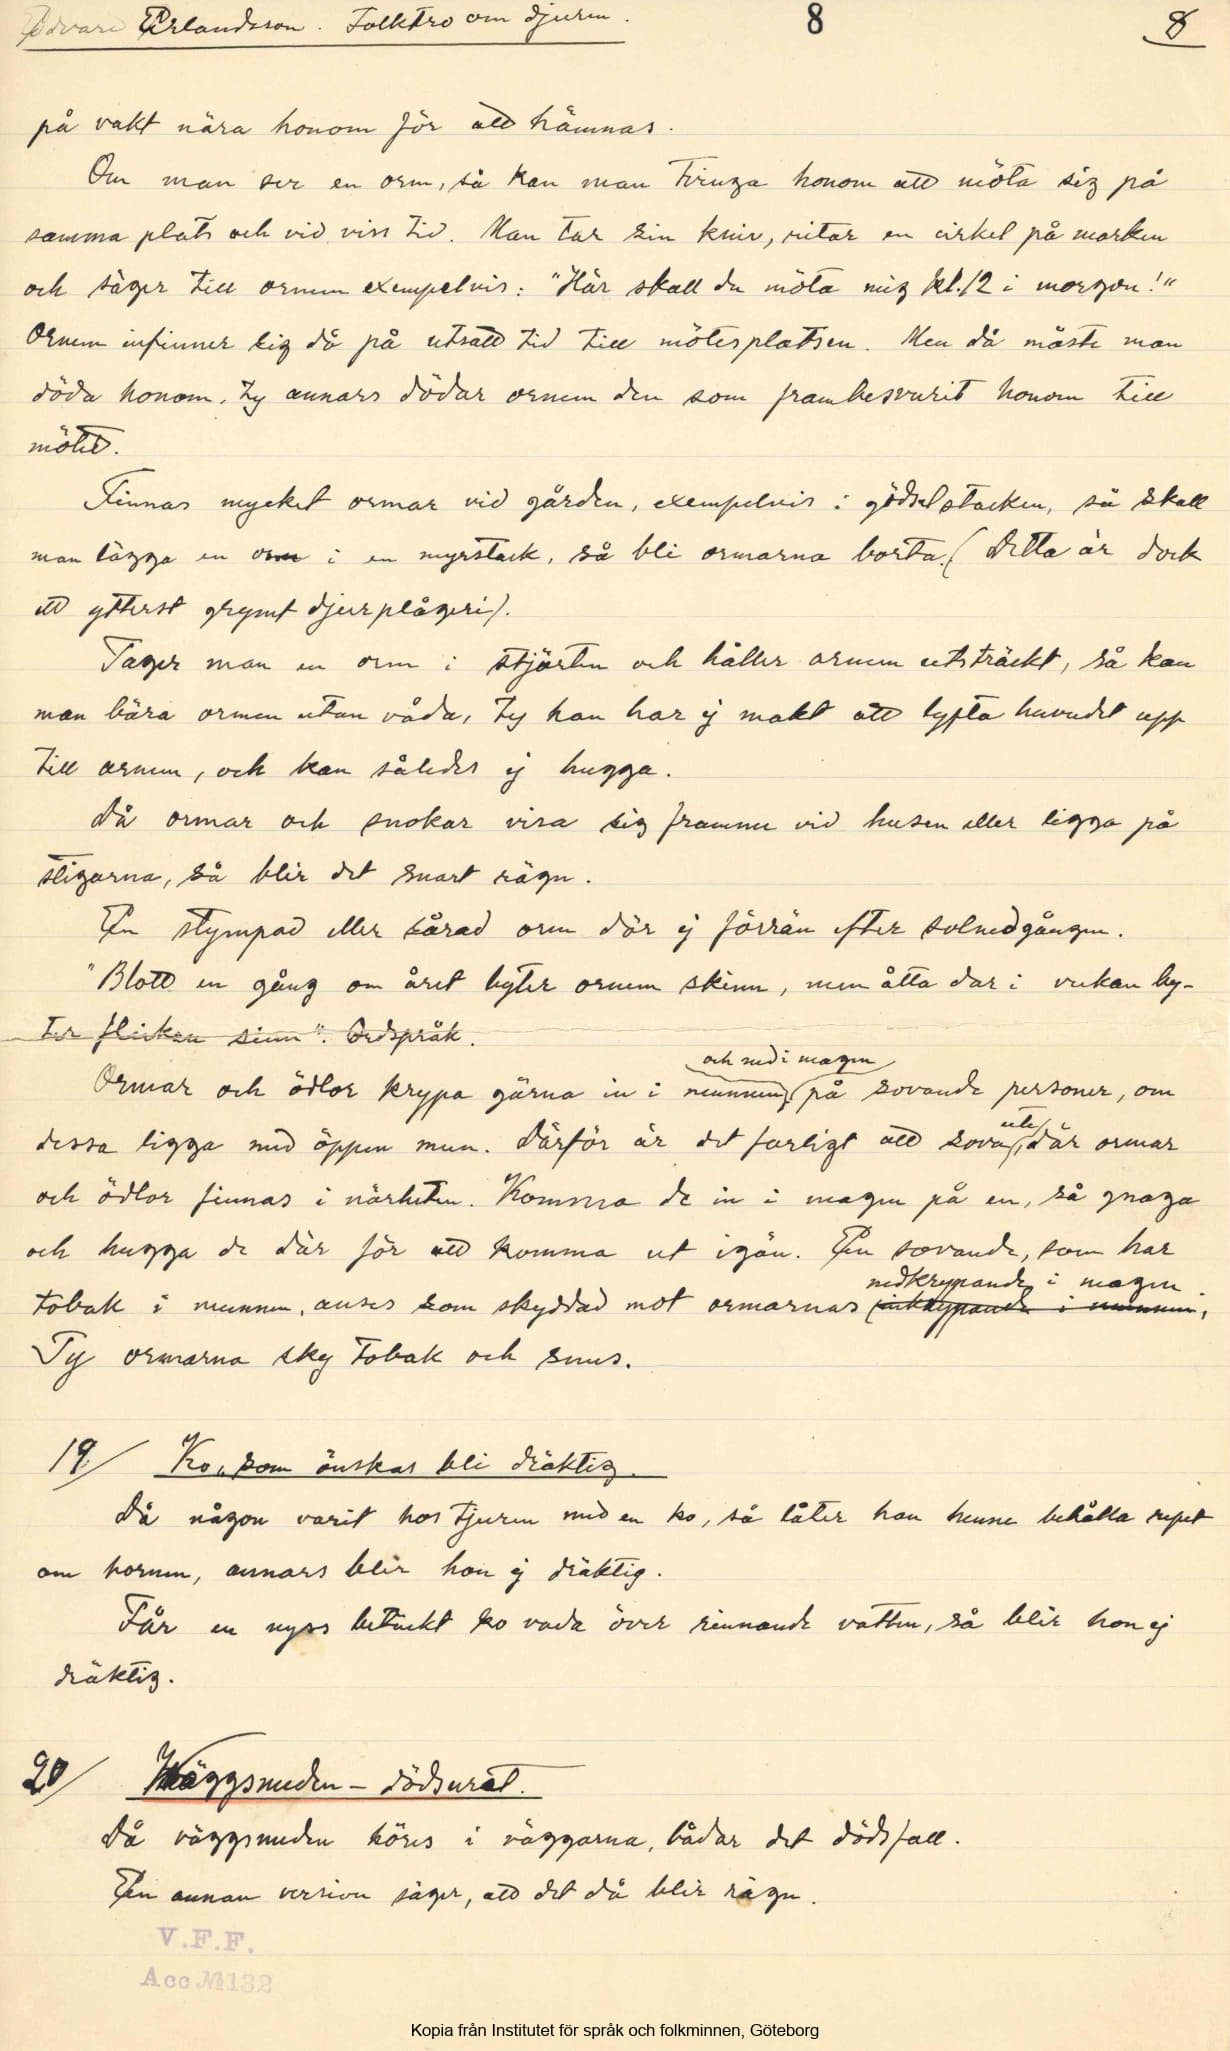 Edvard Erlandsson. Folktro om djuren. 8 8
på vakt nära honom för att hämnas.
Om man ser en orm, så kan man tvinga honom att möta sig på
samma plats och vid viss tid. Man tar sin kniv, ritar en cirkel på marken
och säger till ormen exempelvis: "Här skall du möta mig kl. 12 i morgon!"
Ormen infinner sig då på utsatt tid till mötesplatsen. Men då måste man
döda honom, ty annars dödar ormen den som frambesvurit honom till
mötet.
Finnas mycket ormar vid gården, exempelvis i gödselstacken, så skall
man lägga en orm i en myrstack, så bli ormarna borta. (Detta är dock
ett ytterst grymt djurplågeri).
Tager man en orm i stjärten och håller armen utsträckt, så kan
man bära ormen utan våda, ty han har ej makt att lyfta huvudet upp
till armen, och kan således ej hugga.
Då ormar och snokar visa sig framme vid husen eller ligga på
stigarna, så blir det snart rägn.
En stympad eller sårad orm dör ej förrän efter solnedgången.
"Blott en gång om året byter ormen skinn, men åtta dar i veckan by-
ter flickan sinn". Ordspråk.
och ned i magen
Ormar och ödlor krypa gärna in i munnen, på sovande personer, om
dessa ligga med öppen mun. Därför är det farligt att sova ute, där ormar
och ödlor finnas i närheten. Komma de in i magen på en, så gnaga
och hugga de där för att komma ut igän. En sovande, som har
nedkrypande i magen.
tobak i munnen, anses som skyddad mot ormarnas inkrypande i munnen,
Ty ormarna sky tobak och snus.
19/ Ko, som önskas bli dräktig.
Då någon varit hos tjuren med en ko, så låter han henne behålla repet
om hornen, annars blir hon ej dräktig.
Får en nyss betäckt ko vada över rinnande vatten, så blir hon ej
dräktig.
20/ Väggsmeden – dödsuret.
Då väggsmeden höres i väggarna, bådar det dödsfall.
En annan version säger, att det då blir rägn.
V.F.F.
Acc № 132
Kopia från Institutet för språk och folkminnen, Göteborg